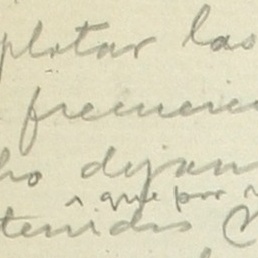 plotar las
frecuenci
ho dejan
^ que por
tenidos